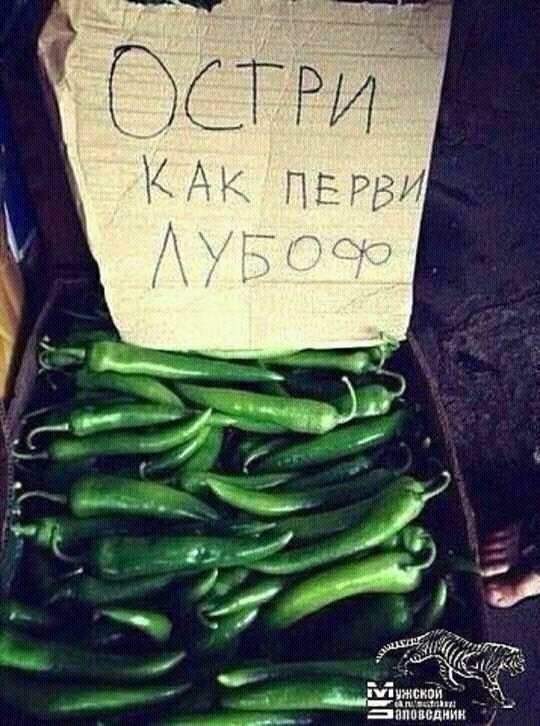 ОСТРИ
КАК ПЕРВИ
ЛУБОФ
Мужской
ok.ru/muzhskoyz
Заповедник